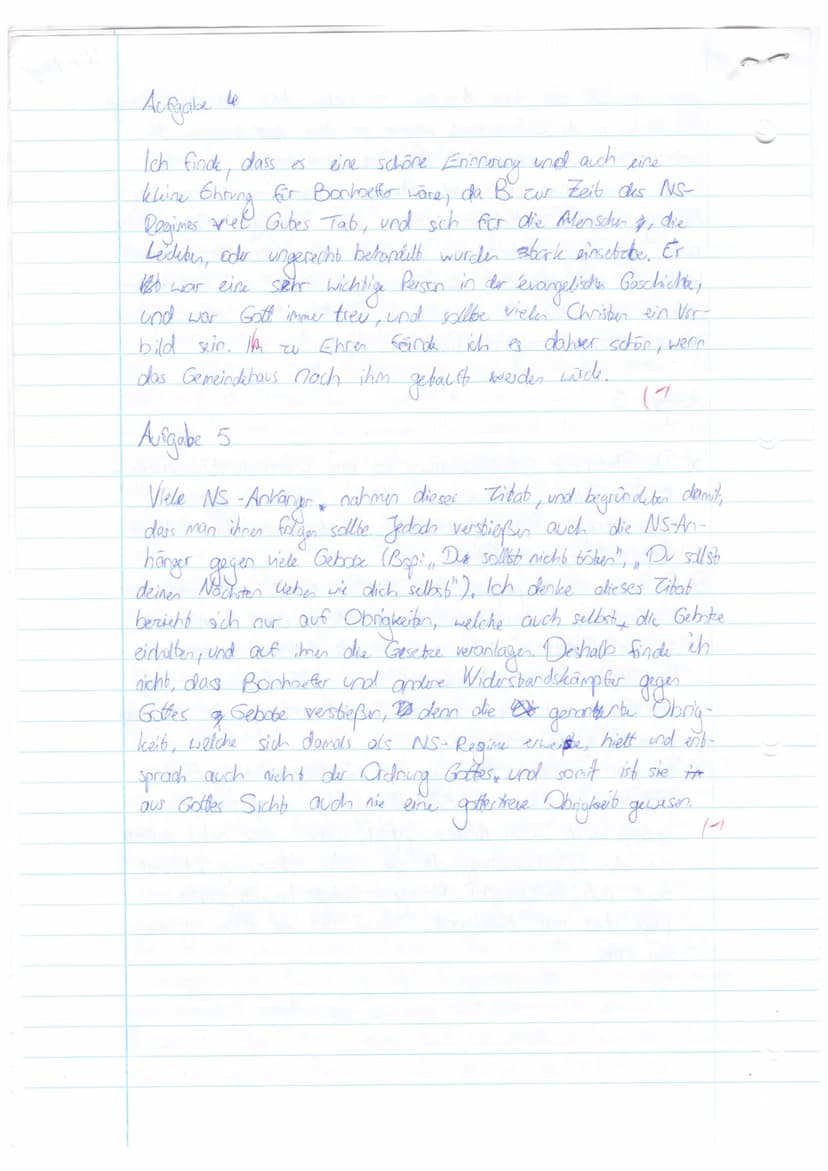 Aufgabe 4
Ich finde, dass es eine schöne Erinnerung und auch eine
kleine Ehrung für Bonhoeffer wäre, da B. zur Zeit des NS-
Regimes viel Gutes Tat, und sich für die Menschen, die
Leideten, oder ungerecht behandelt wurden stark einsetzte. Er
war eine sehr wichtige Person in der evangelischen Geschichte,
und war Gott immer treu, und sollte vielen Christen ein Vor-
bild sein. Ihm zu Ehren fände ich es daher schön, wenn
das Gemeindehaus nach ihm getauft werden würde.
Aufgabe 5
Viele NS-Anhänger nahmen dieses Zitat, und begründeten damit,
dass man ihnen folgen sollte Jedoch verstießen auch die NS-An-
hänger gegen viele Gebote (Bsp: „Du sollst nicht töten", „Du sollst
deinen Nächsten lieben wie dich selbst"). Ich denke dieses Zitat
bezieht sich nur auf Obrigkeiten, welche auch selbst die Gebote
einhalten, und auf ihnen die Gesetze veranlagen. Deshalb finde ich
nicht, dass Bonhoeffer und andere Widerstandskämpfer gegen
Gottes Gebote verstießen, denn die genannte Obrig-
keit, welche sich damals als NS-Regime erweiste, hielt und ent-
sprach auch nicht der Ordnung Gottes, und somit ist sie
aus Gottes Sicht auch nie eine gottestreue Obrigkeit gewesen.